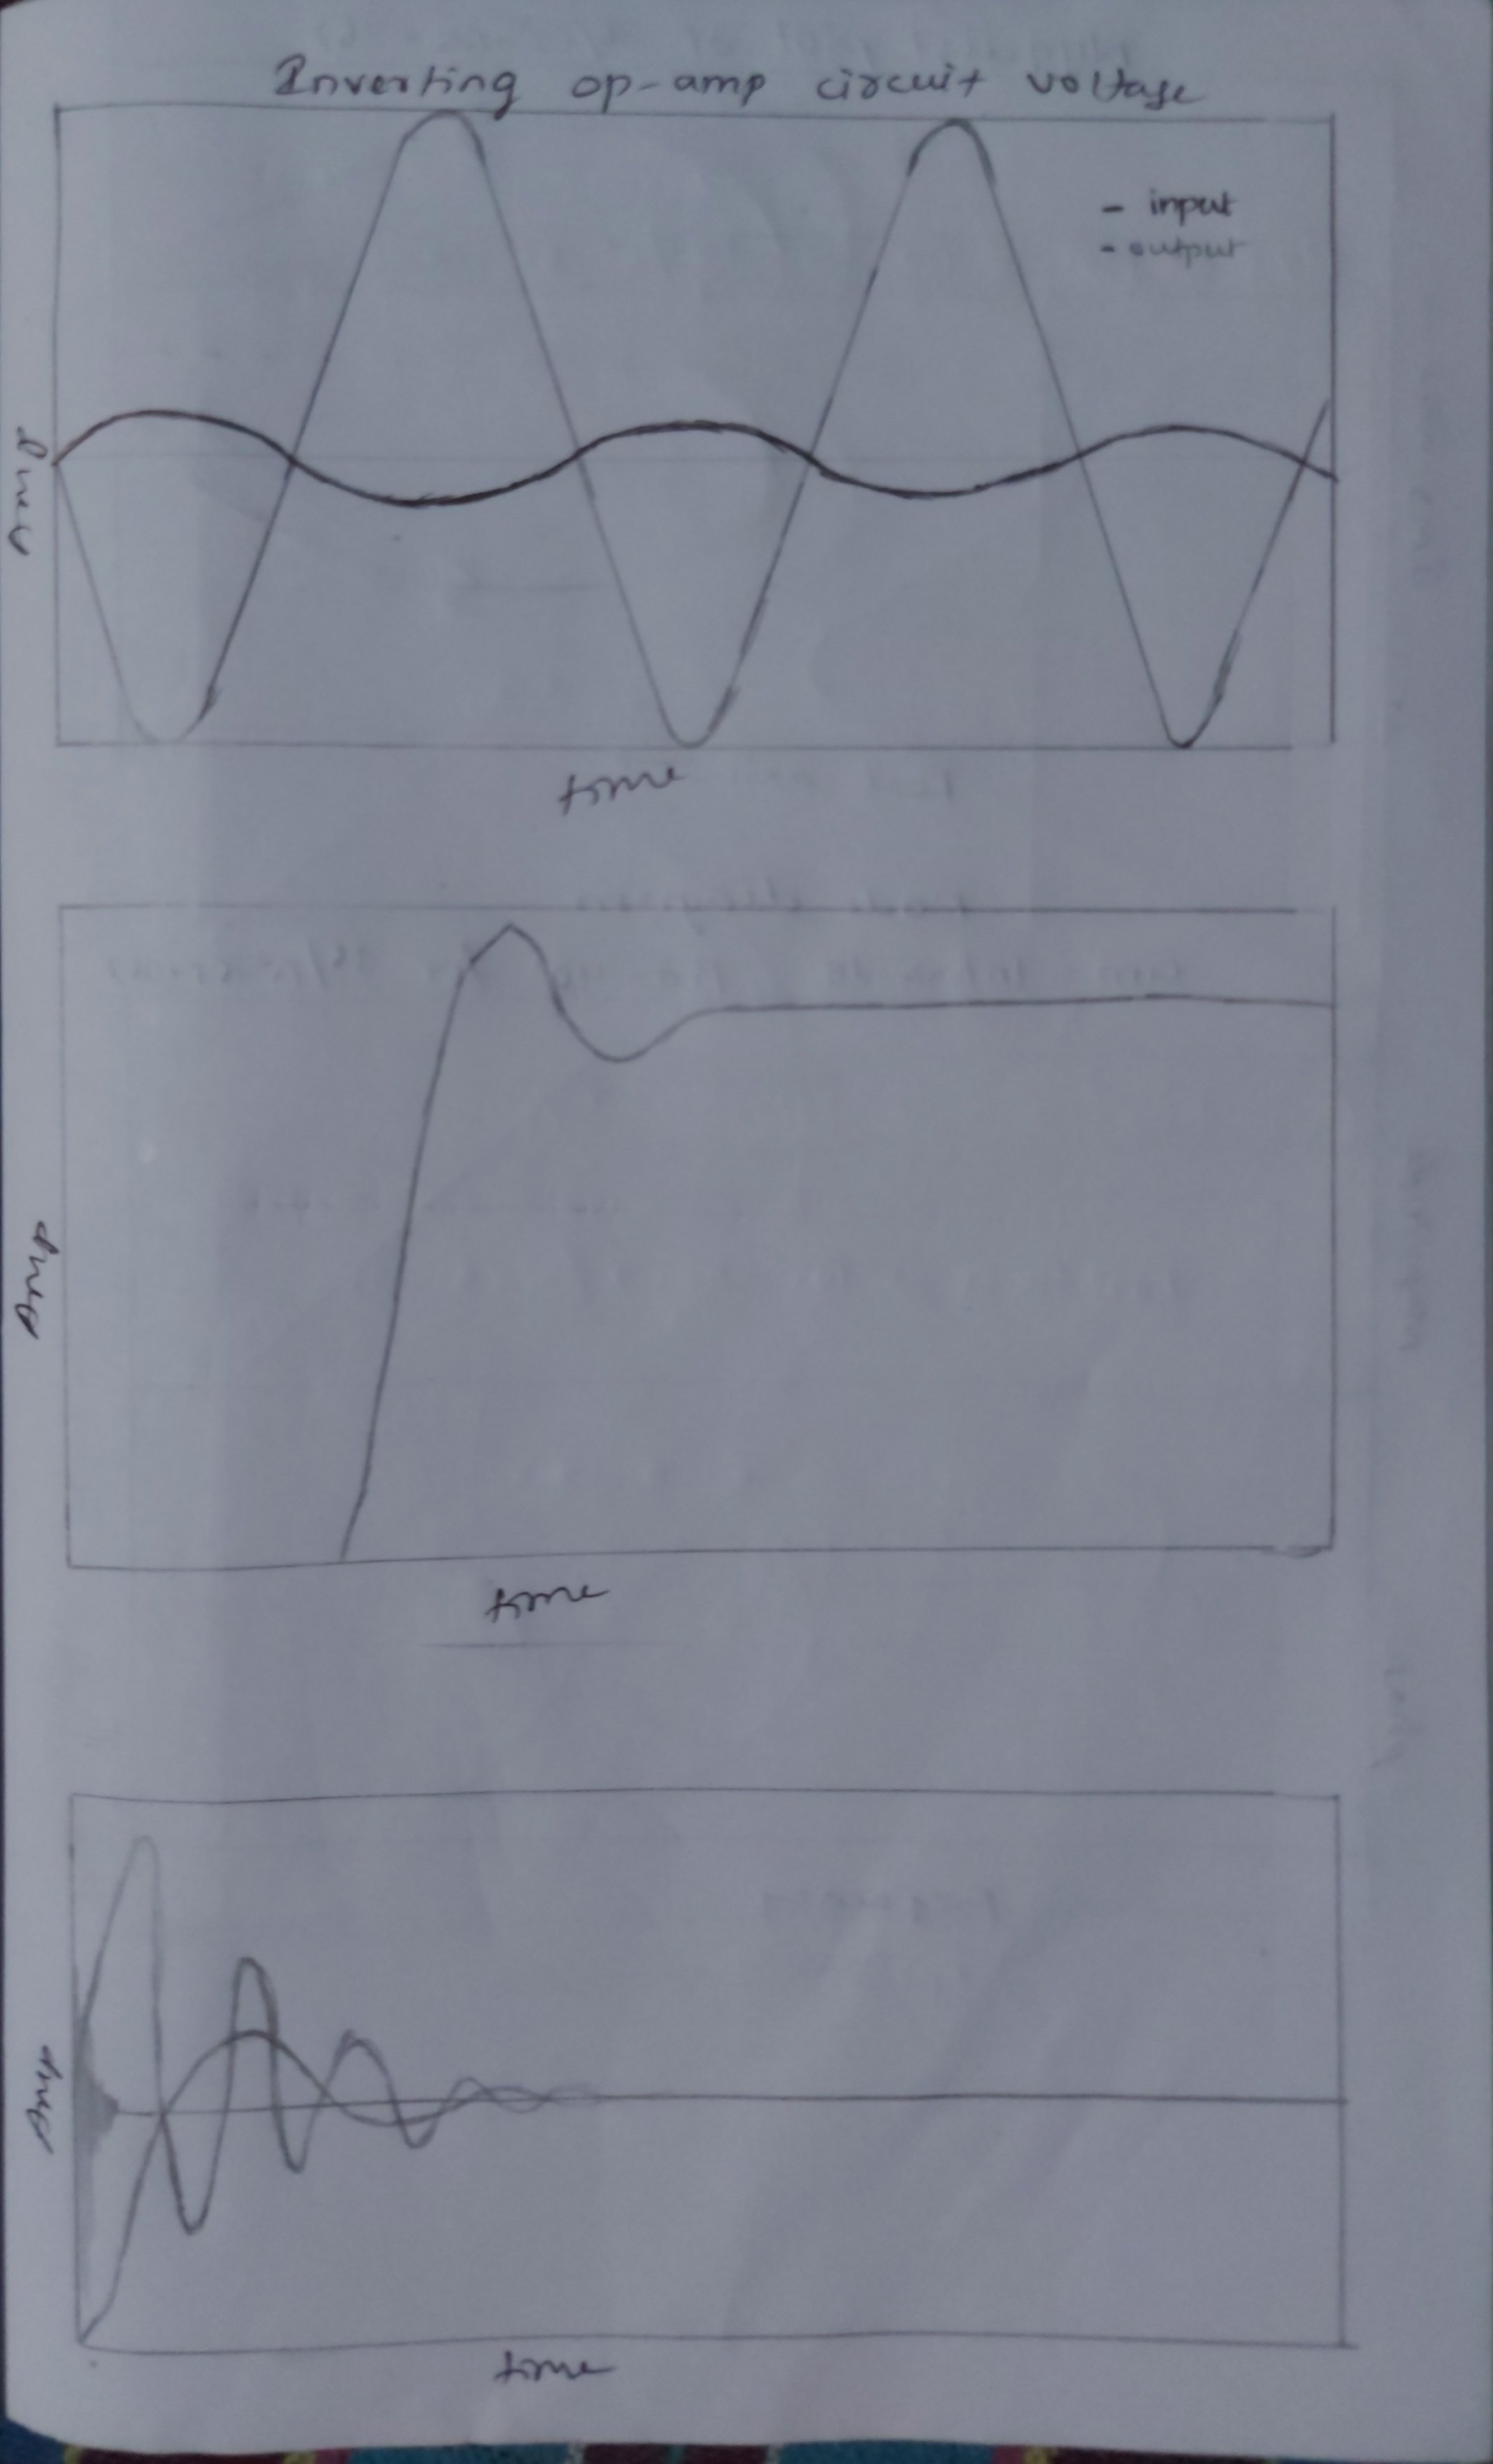 Inverting op-amp circuit voltage
- input
- output
Amp
time
Amp
time
Amp
time